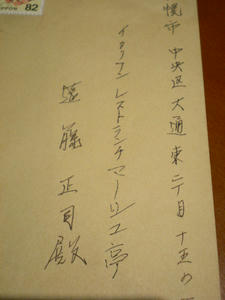 幌市 中央区 大通東二丁目 十五の
イタリアンレストラン チマージュ亭
遠藤 正司 殿
NIPPON 82